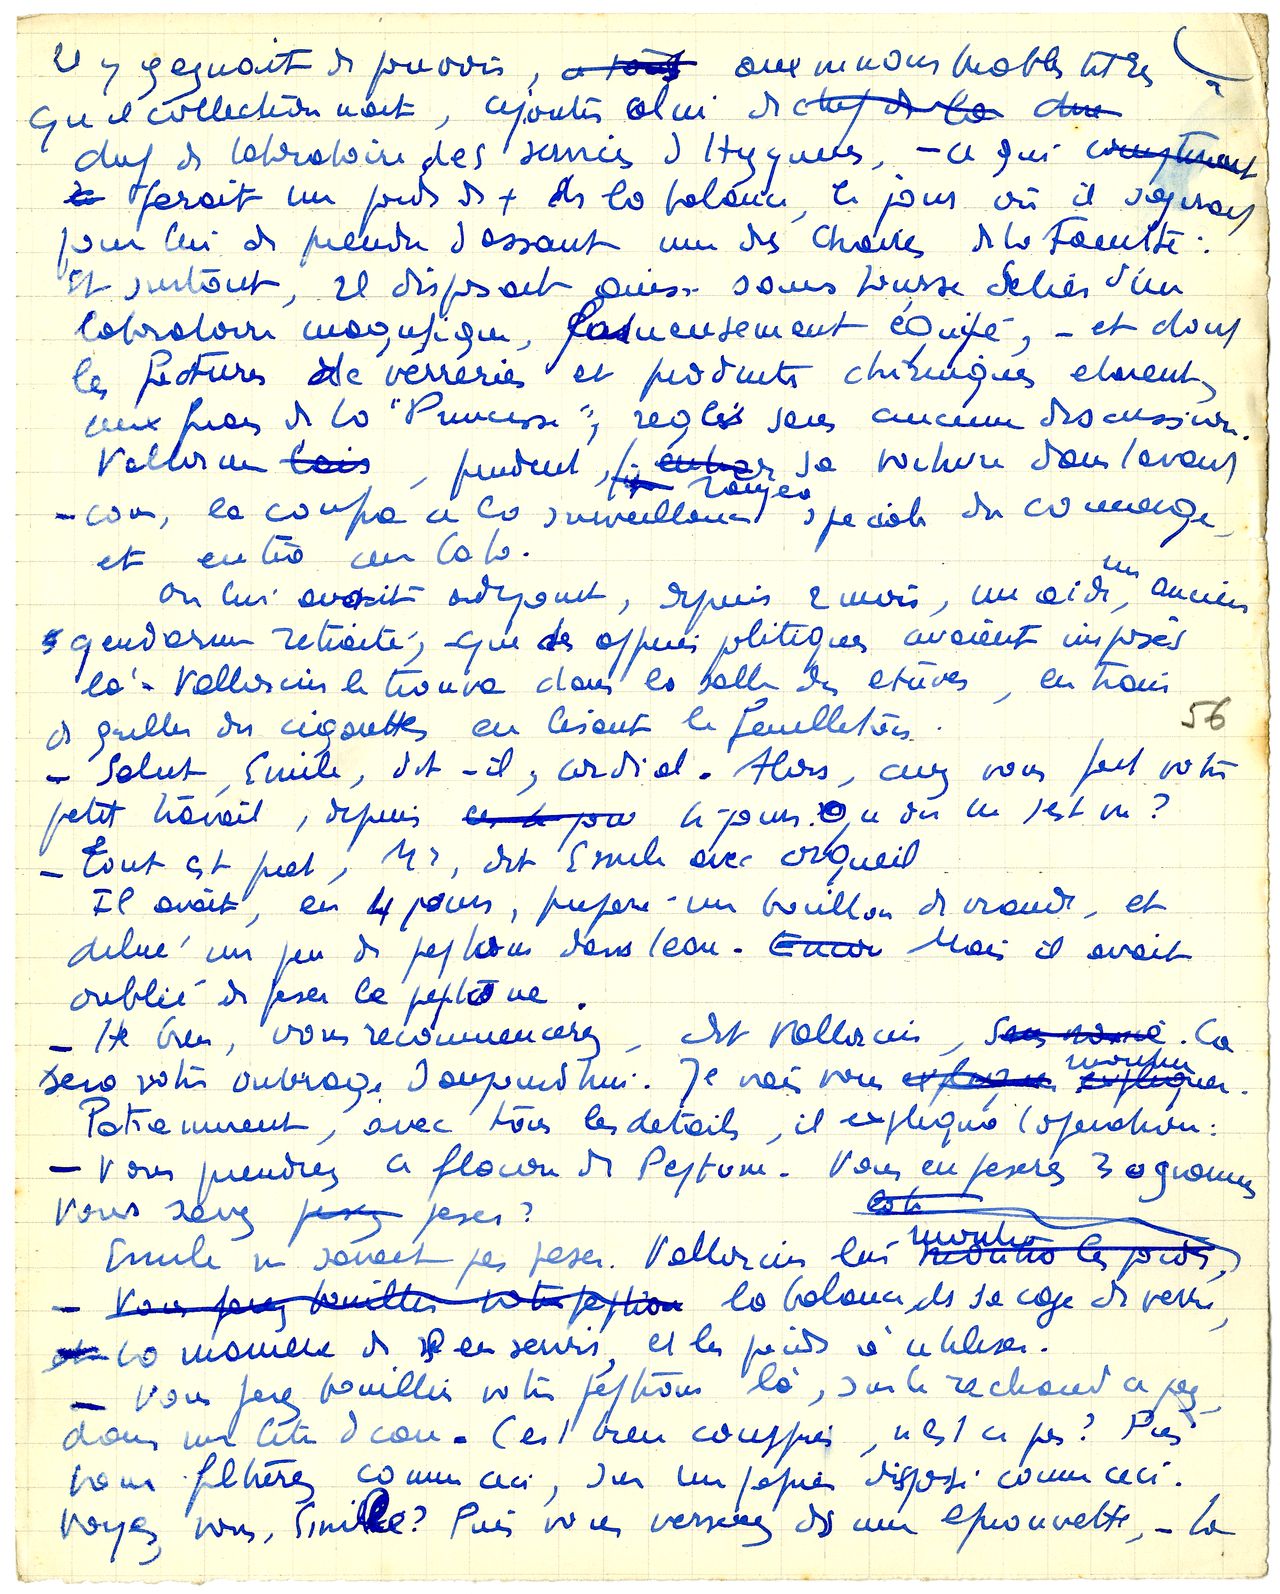 Il y gagnait de pouvoir, a tous aux innombrables titres
qu'il collectionnait, ajouter celui de chef de la
chef de laboratoire des services d'Hygiène, - ce qui
le ferait un poids de + ds la balance, le jour où il s'agirait
pour lui de prendre d'assaut une des chaires de la Faculté.
Et surtout, il disposait ainsi sans bourse délier d'un
laboratoire magnifique, luxueusement équipé, - et dont
les factures de verreries et produits chimiques étaient,
aux frais de la "Princesse", réglés sans aucune discussion.
Vallorcin, prudent, rangea sa voiture dans l'avant
-cour, la confia à la surveillance spéciale du concierge,
et entra au labo.
On lui avait adjoint, depuis 2 mois, un aide, un ancien
gendarme retraité, que des appuis politiques avaient imposés
là. Vallorcin le trouva dans la salle des étuves, en train
de griller des cigarettes en lisant le feuilleton.
56
- Salut, Emile, dit-il, cordial. Alors, avez vous fait votre
petit travail, depuis ces 4 jours 4 jours qu'on ne s'est vu ?
- Tout est prêt, Mr, dit Emile avec orgueil
Il avait, en 4 jours, préparé un bouillon de viande, et
dilué un peu de peptone dans l'eau. Encor Mais il avait
oublié de peser la peptone.
- Hé bien, vous recommencerez, dit Vallorcin. Ca
sera votre ouvrage d'aujourd'hui. Je vais vous expliquer expliquer montrer.
Patiemment, avec tous les détails, il expliqua l'opération :
- Vous prendrez ce flacon de Peptone. Vous en peserez 30 grammes
Vous savez pesez peser ?
Emile ne savait pas peser. Vallorcin lui montra montra les poids,
- Vous ferez bouillir votre peptone la balance, ds sa cage de verre,
la manière de s'en servir, et les poids à utiliser.
- Vous ferez bouillir votre peptone là, sur le réchaud à gaz,
dans un litre d'eau. C'est bien compris, n'est ce pas ? Puis
vous filtrerez comme ceci, sur un papier disposé comme ceci.
Voyez vous, Emile ? Puis vous verserez ds une éprouvette, - la